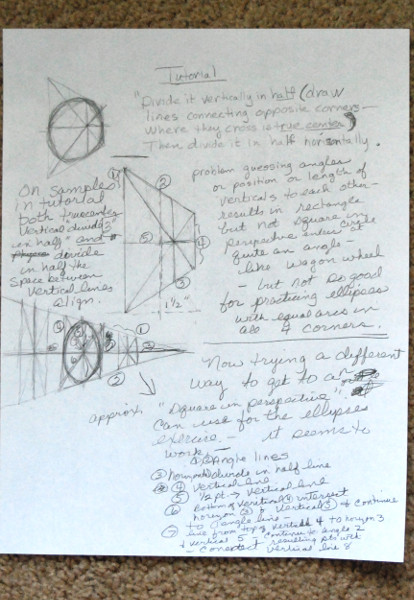 Tutorial
"Divide it vertically in half (draw
lines connecting opposite corners –
where they cross is true center)
Then divide it in half horizontally.
On sample
in tutorial
both true center
Vertical divide
in half" and
divide
in half the
space between
Vertical lines
align.
problem guessing angles
or position or length of
verticals to each other –
results in rectangle
but not square in
perspective unless at
quite an angle –
like wagon wheel
– but not so good
for practicing ellipses
with equal arcs in
all 4 corners.
1
2
5
4
3
1½"
1
2
Now trying a different
way to get to an
approx. "square in perspective".
Can use for the ellipses
exercise. – it seems to
work –
①② Angle lines
③ horizontal divide in half line
④ vertical line
⑤ ½ pt → vertical line
⑥ Bottom of vertical ④ intersect
horizon ③ & vertical ⑤ & continue
to angle line –
⑦ line from top of vertical 4 to horizon 3
& vertical 5 – continue to angle 2
– Connect resulting pts with
vertical line 8